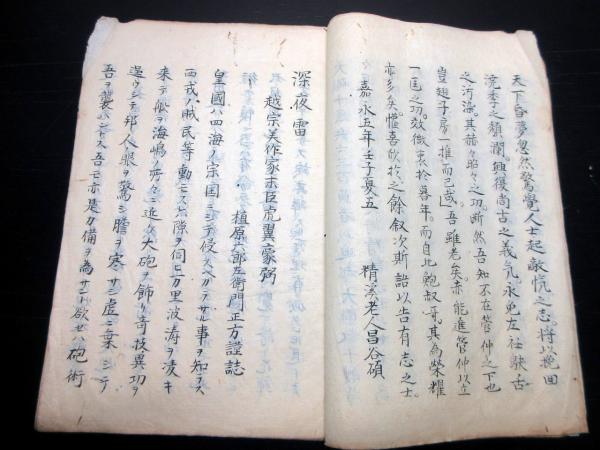 天下昏夢忽然驚覺人士起敵愾之志将以挽回
澆季之頽瀾興復尚古之義氣永免左衽駃舌
之污濊其赫々昭々之功断然吾知不在管仲之下也
豈翅子房一推而已或吾雖老矣亦能進管仲以立
一匡之功效微衷於暮年而自比鮑叔哥其為榮耀
亦多矣惟喜欣於之餘叙次斯語以告有志之士
嘉永五年壬子夏五
精溪老人昌谷碩
深夜雷
越宗美作家末臣虎翼豪弼
植原六郎左衛門正方謹誌
皇國ハ四海ノ宗国ニシテ侵スベカラザル事ヲ知ラズ
西戎ノ賊民等動モスレバ隙ヲ伺ヒ万里波濤ヲ凌キ
来テ船ヲ海嶋ノ所々ニ近ヅケ大砲ヲ飾リ奇技異功ヲ
逞ウシテ邦人ノ眼ヲ驚シ膽ヲ寒サシメ虚ニ乗シテ
吾ヲ襲ハントス吾モ亦是カ備ヲ為サント欲セハ砲術